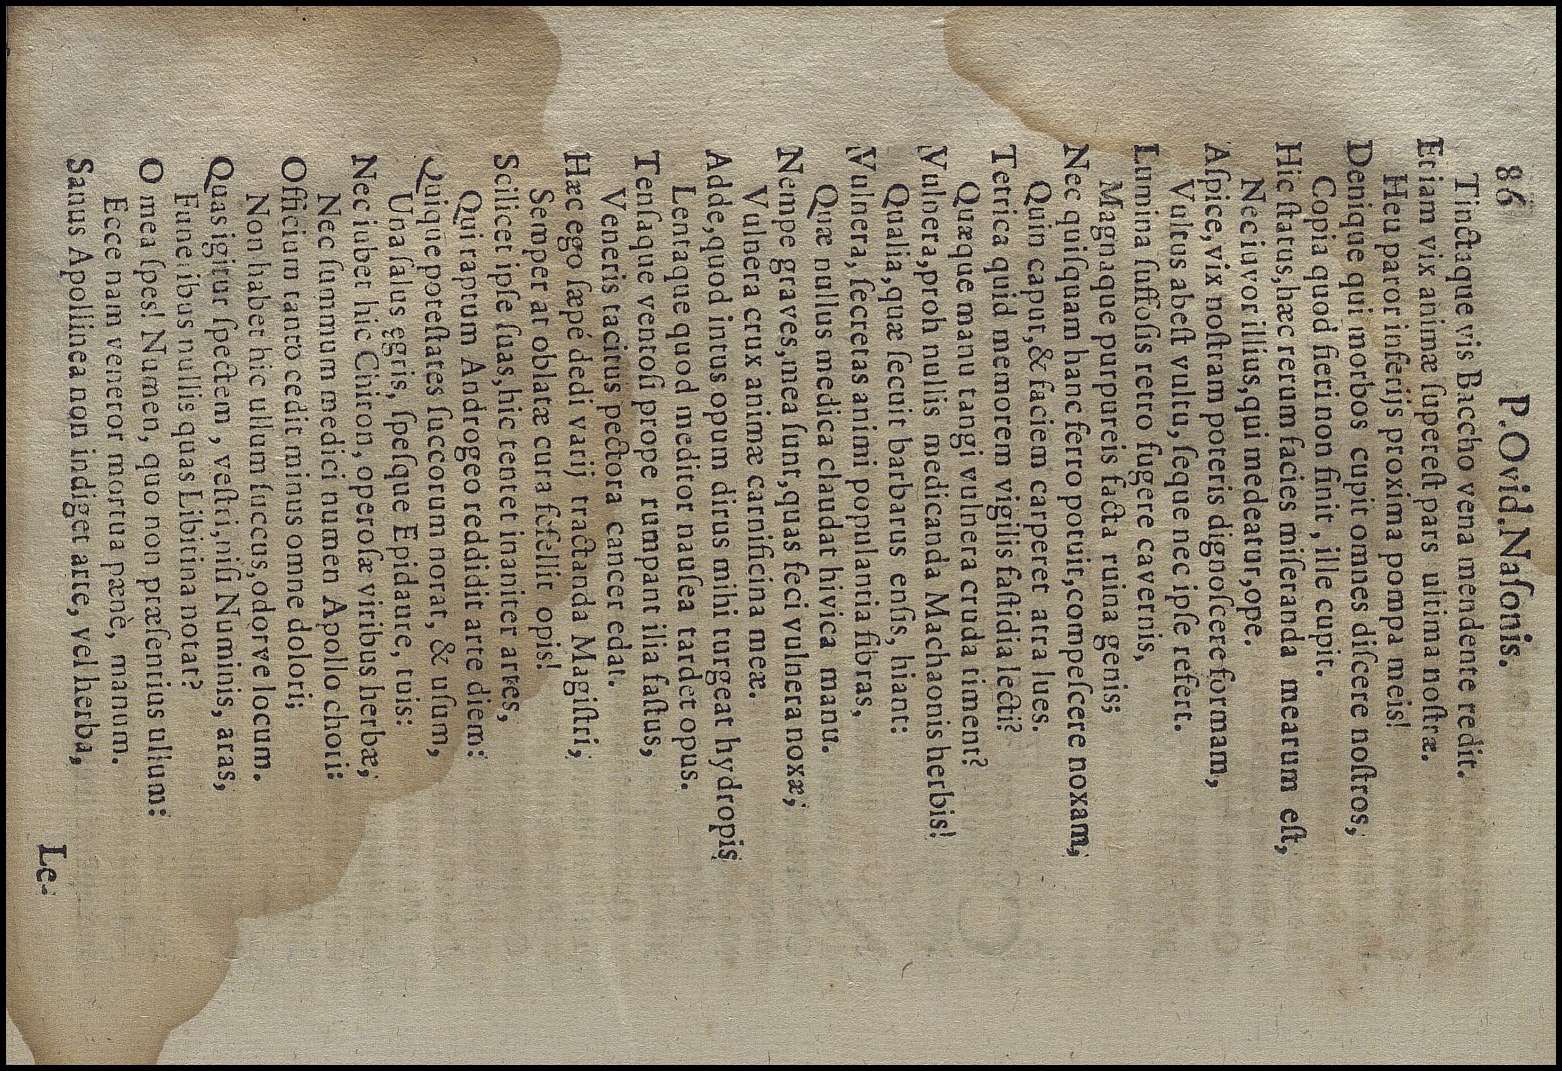 86 P. Ovid. Naſonis.
Tinctaque vis Baccho vena mendente redit.
Etiam vix animæ ſupereſt pars ultima noſtræ.
Heu paror inferijs proxima pompa meis!
Denique qui morbos cupit omnes diſcere noſtros,
Copia quod fieri non ſinit, ille cupit.
Hic ſtatus, hæc rerum facies miſeranda mearum eſt,
Nec iuvor illius, qui medeatur, ope.
Aſpice, vix noſtram poteris dignoſcere formam,
Vultus abeſt vultu, ſeque nec ipſe refert.
Lumina ſuffoſis retro fugere cavernis,
Magnaque purpureis facta ruina genis;
Nec quiſquam hanc ferro potuit, compeſcere noxam,
Quin caput, & faciem carperet atra lues.
Tetrica quid memorem vigilis faſtidia lecti?
Quæque manu tangi vulnera cruda timent?
Vulnera, proh nullis medicanda Machaonis herbis!
Qualia, quæ ſecuit barbarus enſis, hiant:
Vulnera, ſecretas animi populantia fibras,
Quæ nullus medica claudat hivica manu.
Nempe graves, mea ſunt, quas feci vulnera noxæ;
Vulnera crux animæ carnificina meæ.
Adde, quod intus opum dirus mihi turgeat hydropis
Lentaque quod meditor nauſea tardet opus.
Tenſaque ventoſi prope rumpant ilia faſtus,
Veneris tacitus pectora cancer edat.
Hæc ego ſæpé dedi varij tractanda Magiſtri,
Semper at oblatæ cura fefellit opis!
Scilicet ipſe ſuas, hic tentet inaniter artes,
Qui raptum Androgeo reddidit arte diem:
Quique poteſtates ſuccorum norat, & uſum,
Una ſalus egris, ſpeſque Epidaure, tuis:
Nec iubet hic Chiron, operoſæ viribus herbæ;
Nec ſummum medici numen Apollo chori:
Officium tantò cedit minus omne dolori;
Non habet hic ullum ſuccus, odorve locum.
Quas igitur ſpectem, veſtri, niſi Numinis, aras,
Fune ibus nullis quas Libitina notat?
O mea ſpes! Numen, quo non præſentius ullum:
Ecce nam veneror mortua pænè, manum.
Sanus Apollinea non indiget arte, vel herba,
Le-